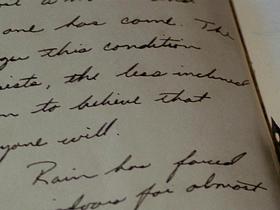 one has come. The
this condition
the less inclined
to believe that
will.
Rain has forced
for almost